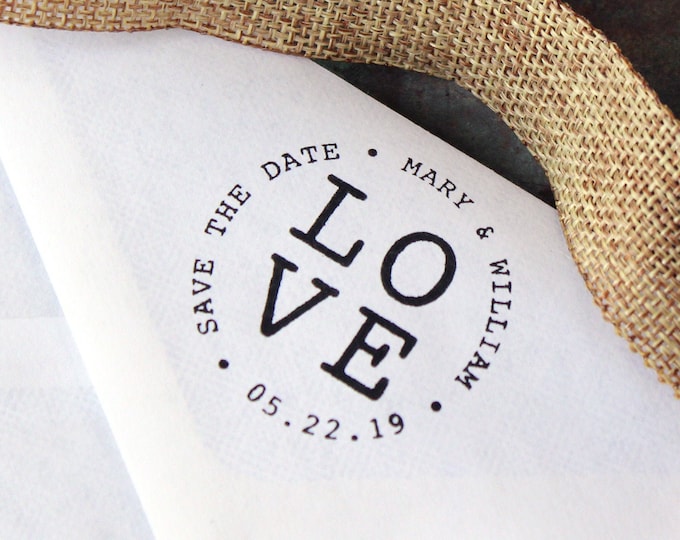 SAVE THE DATE • MARY & WILLIAM •
05.22.19 •
LO
VE